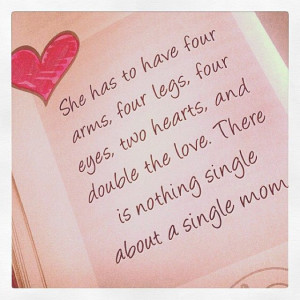 She has to have four
arms, four legs, four
eyes, two hearts, and
double the love. There
is nothing single
about a single mom